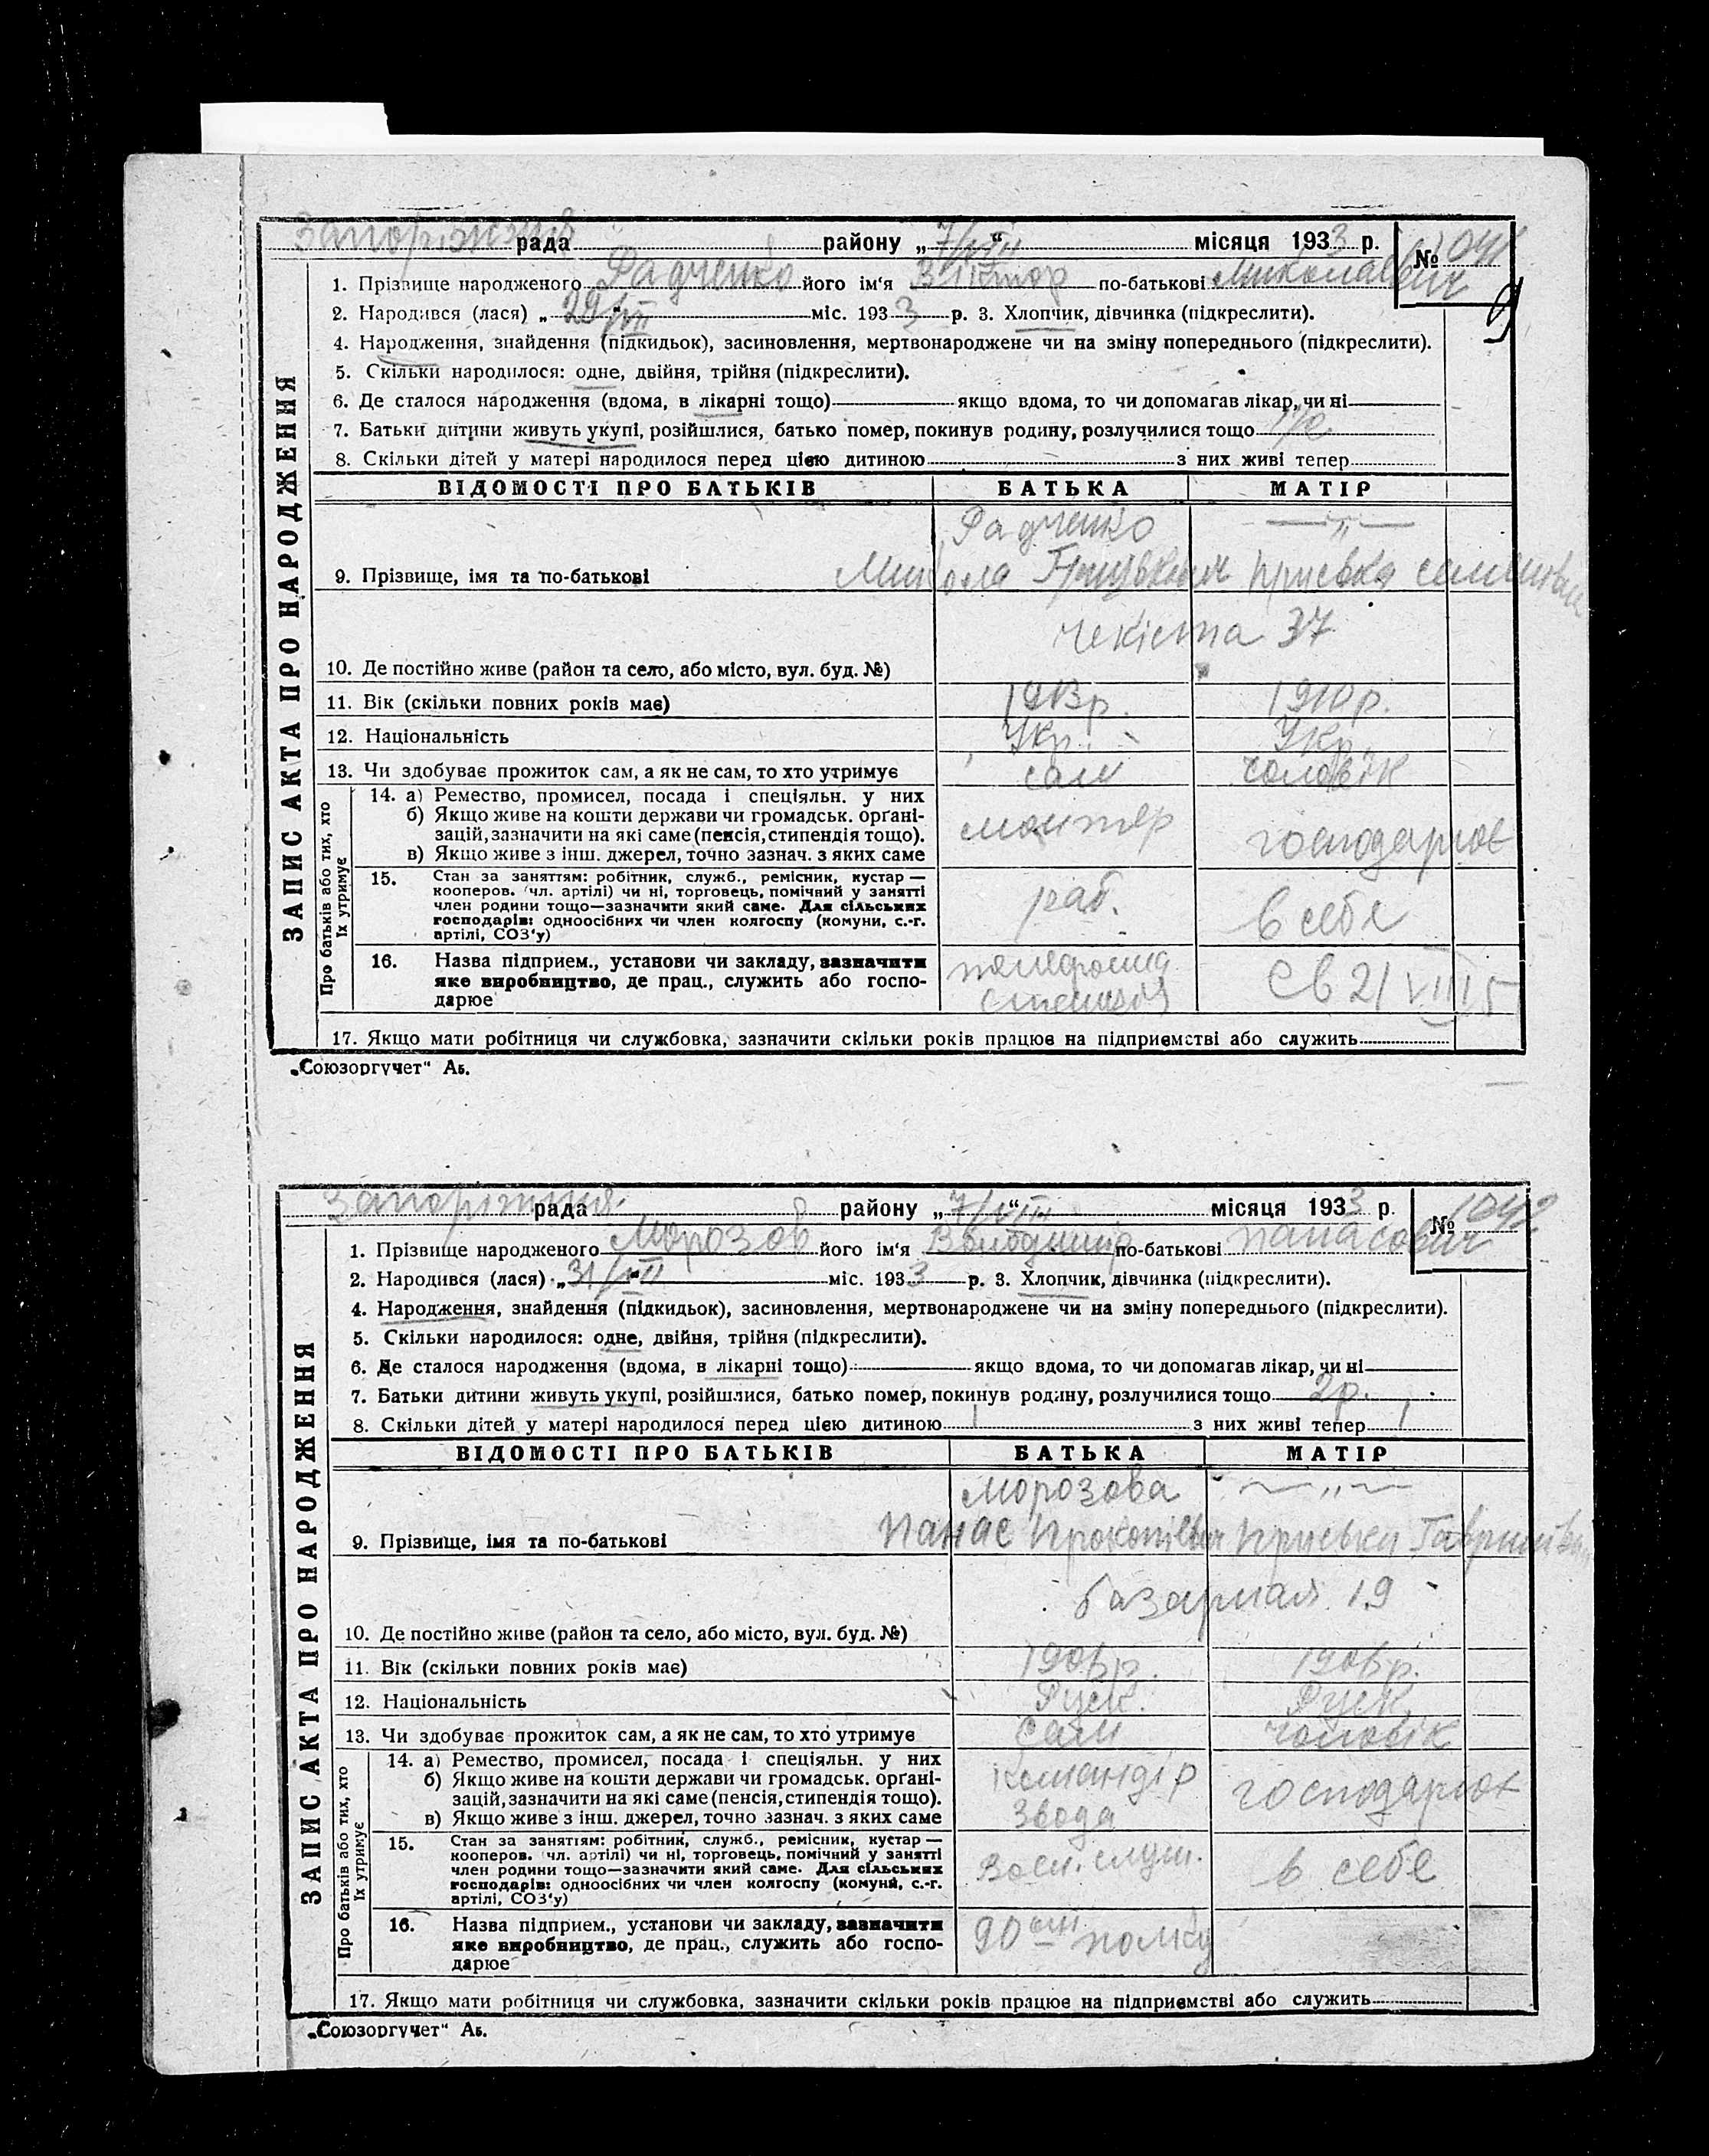 Запоріжжя рада району „7/VIII“ місяця 1933 р. № 1041
1. Прізвище народженого Радченко його ім'я Віктор по-батькові Миколаєвич
2. Народився (лася) „29/VII міс. 1933 р. 3. Хлопчик, дівчинка (підкреслити).
4. Народження, знайдення (підкидьок), засиновлення, мертвонароджене чи на зміну попереднього (підкреслити).
5. Скільки народилося: одне, двійня, трійня (підкреслити).
6. Де сталося народження (вдома, в лікарні тощо) якщо вдома, то чи допомагав лікар, чи ні
7. Батьки дитини живуть укупі, розійшлися, батько помер, покинув родину, розлучилися тощо
8. Скільки дітей у матері народилося перед цією дитиною з них живі тепер
ЗАПИС АКТА ПРО НАРОДЖЕННЯ
ВІДОМОСТІ ПРО БАТЬКІВ БАТЬКА МАТІР
Радченко —„—
9. Прізвище, імя та по-батькові Микола Приська
чекіста 37
10. Де постійно живе (район та село, або місто, вул. буд. №)
11. Вік (скільки повних років має) 1913р. 1910р.
12. Національність Укр. Укр.
13. Чи здобуває прожиток сам, а як не сам, то хто утримує сам чоловік
Про батьків або тих, хто їх утримує
14. а) Ремество, промисел, посада і спеціяльн. у них
б) Якщо живе на кошти держави чи громадськ. орґані-
зацій, зазначити на які саме (пенсія, стипендія тощо).
в) Якщо живе з інш. джерел, точно зазнач. з яких саме
монтер господарює
15. Стан за заняттям: робітник, служб., ремісник, кустар —
кооперов. чл. артілі) чи ні, торговець, помічний у занятті
член родини тощо—зазначити який саме. Для сільських
господарів: одноосібних чи член колгоспу (комуни, с.-г.
артілі, СОЗ'у)
раб. в себе
16. Назва підприєм., установи чи закладу, зазначити
яке виробництво, де прац., служить або госпо-
дарює
телефонна станція Св 21 VIII 5
17. Якщо мати робітниця чи службовка, зазначити скільки років працює на підприємстві або служить
„Союзоргучет“ Аб.
Запоріжжя рада району „7/VIII“ місяця 1933 р. № 1042
1. Прізвище народженого Морозов його ім'я Володимир по-батькові Панасович
2. Народився (лася) „31/VII міс. 1933 р. 3. Хлопчик, дівчинка (підкреслити).
4. Народження, знайдення (підкидьок), засиновлення, мертвонароджене чи на зміну попереднього (підкреслити).
5. Скільки народилося: одне, двійня, трійня (підкреслити).
6. Де сталося народження (вдома, в лікарні тощо) якщо вдома, то чи допомагав лікар, чи ні
7. Батьки дитини живуть укупі, розійшлися, батько помер, покинув родину, розлучилися тощо 2р.
8. Скільки дітей у матері народилося перед цією дитиною 1 з них живі тепер 1
ЗАПИС АКТА ПРО НАРОДЖЕННЯ
ВІДОМОСТІ ПРО БАТЬКІВ БАТЬКА МАТІР
Морозова —„—
9. Прізвище, імя та по-батькові Панас Прокопівич Приська Гаврилівна
базарная 19
10. Де постійно живе (район та село, або місто, вул. буд. №)
11. Вік (скільки повних років має) 1906р. 1906р.
12. Національність Руск. Руск.
13. Чи здобуває прожиток сам, а як не сам, то хто утримує сам чоловік
Про батьків або тих, хто їх утримує
14. а) Ремество, промисел, посада і спеціяльн. у них
б) Якщо живе на кошти держави чи громадськ. орґані-
зацій, зазначити на які саме (пенсія, стипендія тощо).
в) Якщо живе з інш. джерел, точно зазнач. з яких саме
командір звода господарює
15. Стан за заняттям: робітник, служб., ремісник, кустар —
кооперов. чл. артілі) чи ні, торговець, помічний у занятті
член родини тощо—зазначити який саме. Для сільських
господарів: одноосібних чи член колгоспу (комуни, с.-г.
артілі, СОЗ'у)
воен. служ. в себе
16. Назва підприєм., установи чи закладу, зазначити
яке виробництво, де прац., служить або госпо-
дарює
90 полку
17. Якщо мати робітниця чи службовка, зазначити скільки років працює на підприємстві або служить
„Союзоргучет“ Аб.